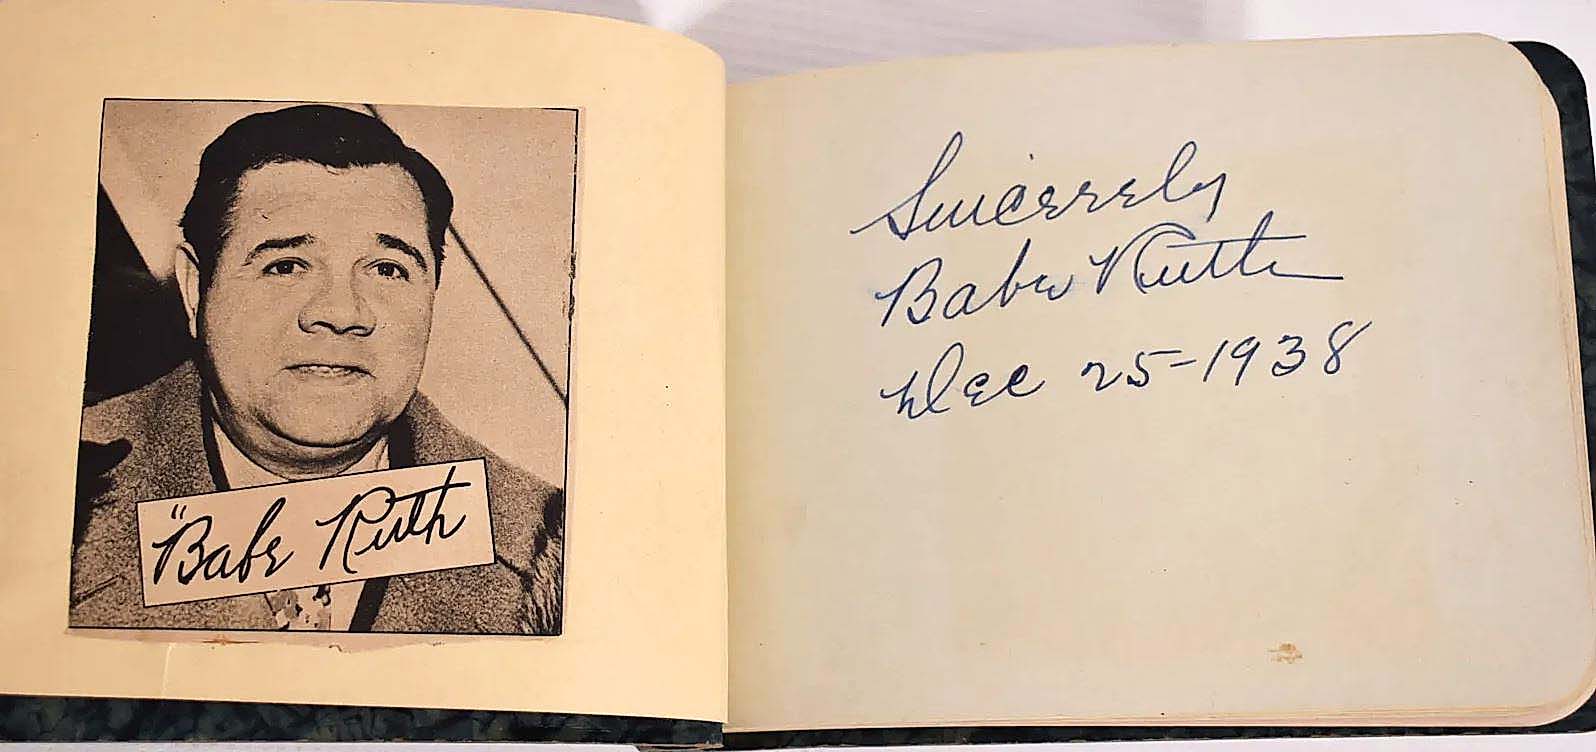 "Babe Ruth
Sincerely
Babe Ruth
Dec 25-1938